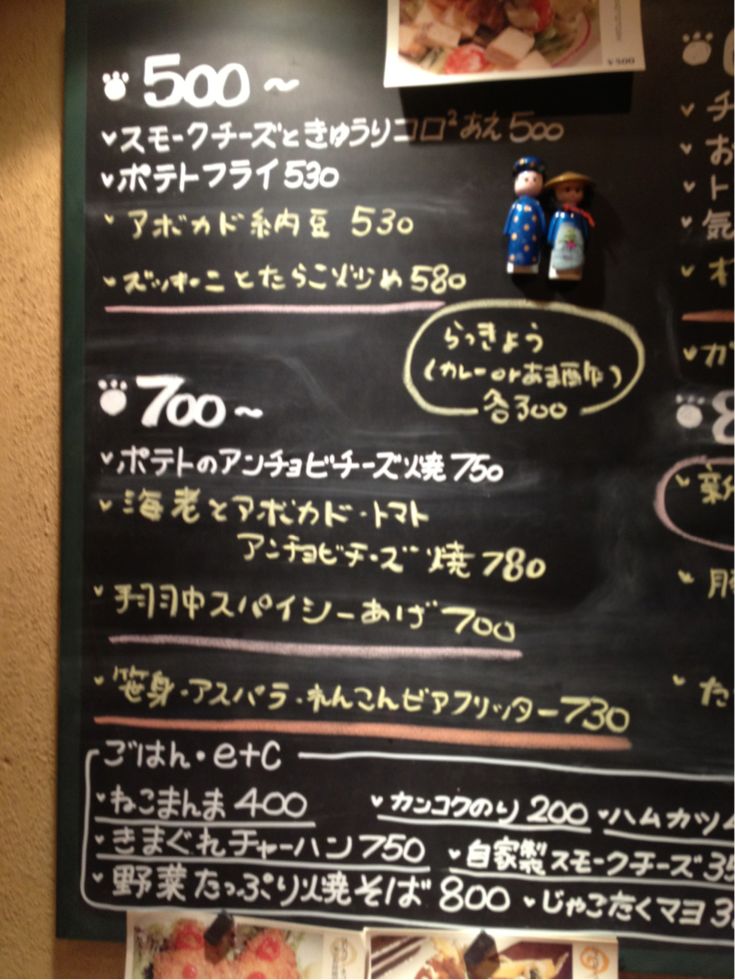 ¥500
500〜
スモークチーズときゅうりコロ²あえ500
ポテトフライ530
アボカド納豆 530
ズッキーニとたらこ炒め580
らっきょう
(カレーorあま酢)
各300
700〜
ポテトのアンチョビチーズ焼750
海老とアボカド・トマト
アンチョビチーズ焼780
手羽中スパイシーあげ700
笹身・アスパラ・れんこんビアフリッター730
ごはん・etc
ねこまんま400
カンコクのり200
ハムカツ
きまぐれチャーハン750
自家製スモークチーズ35
野菜たっぷり焼そば800
じゃこたくマヨ3
チ
お
ト
気
オ
ガ
8
新
豚
た